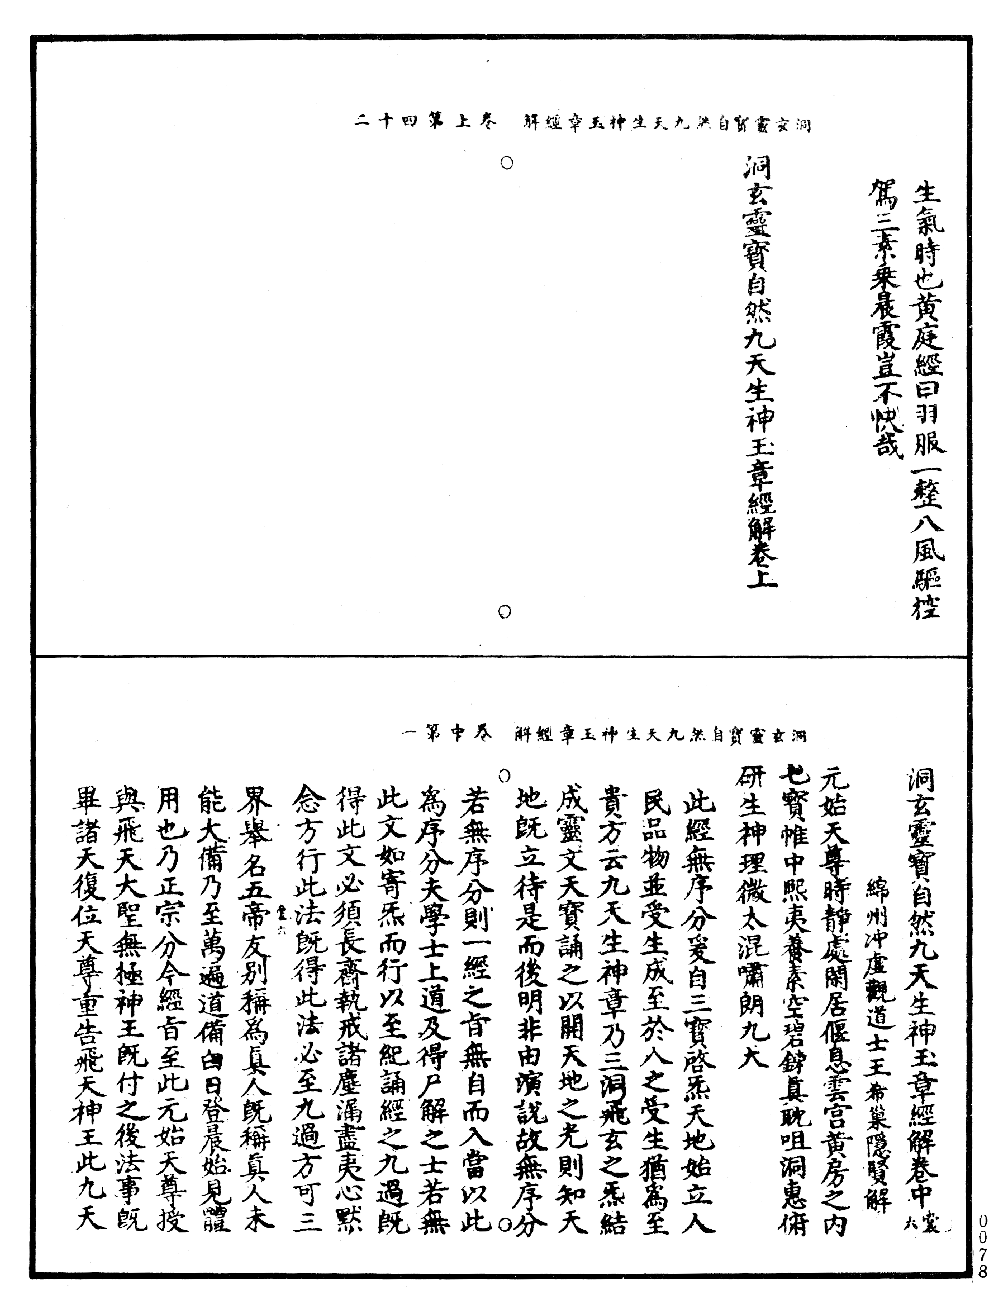 洞玄靈寶自然九天生神玉章經解 卷上 第四十二
生氣時也黃庭經曰羽服一整八風驅控
駕三素乘晨霞豈不快哉
洞玄靈寶自然九天生神玉章經解卷上
洞玄靈寶自然九天生神玉章經解 卷中 第一
洞玄靈寶自然九天生神玉章經解卷中 裳六
綿州沖虛觀道士王希巢隱賢解
元始天尊時靜處閑居偃息雲宮黃房之內
七寶帷中熙夷養素空碧鍊真耽咀洞惠俯
研生神理微太混嘯朗九天
此經無序分爰自三寶啓炁天地始立人
民品物並受生成至於人之受生猶為至
貴方云九天生神章乃三洞飛玄之炁結
成靈文天寶誦之以開天地之光則知天
地既立待是而後明非由演說故無序分
若無序分則一經之旨無自而入當以此
為序分夫學士上道及得尸解之士若無
此文如寄炁而行以至紀誦經之九過既
得此文必須長齋執戒諸塵漏盡夷心默
念方行此法既得此法必至九過方可三
裳六
界舉名五帝友別稱為真人既稱真人未
能大備乃至萬遍道備白日登晨始見體
用也乃正宗分今經旨至此元始天尊授
與飛天大聖無極神王既付之後法事既
畢諸天復位天尊重告飛天神王此九天
0078